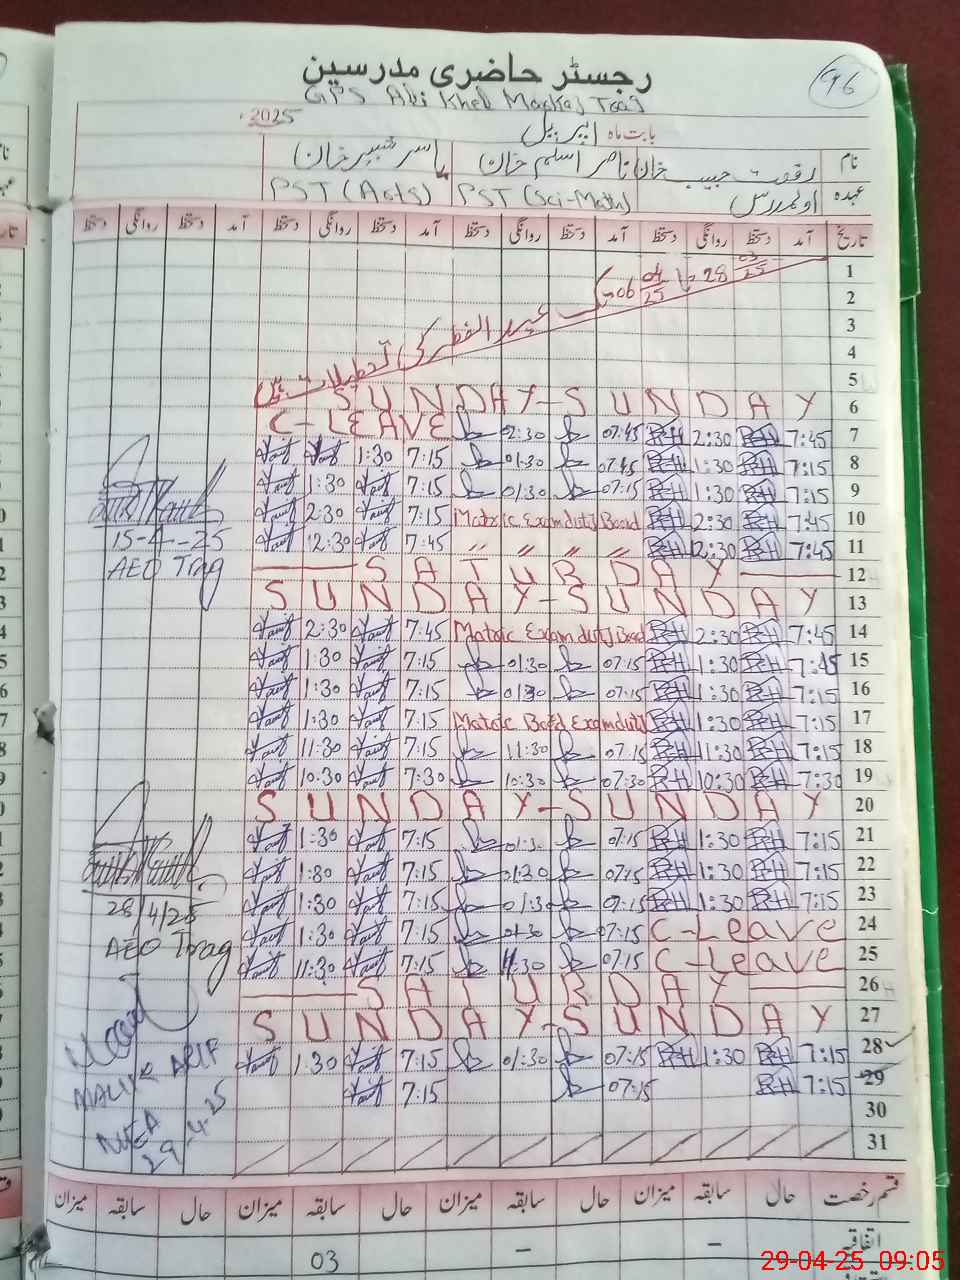 رجسٹر حاضری مدرسین
96
GPS Aki Khel Markaz Trag
بابت ماہ اپریل 2025
نام رفعت حبیب خان ناصر اسلم خان یاسر شبیر خان
عہدہ اول مدرس PST (Sci-Math) PST (Arts)
تاریخ آمد دستخط روانگی دستخط آمد دستخط روانگی دستخط آمد دستخط روانگی دستخط آمد دستخط روانگی دستخط
1
2
28 03/25 تا 06 04/25 تک عید الفطر کی تعطیلات ہیں
3
4
5
SUNDAY-SUNDAY 6
C-LEAVE 02:30 07:45 RH 2:30 RH 7:45 7
1:30 7:15 01:30 07:45 RH 1:30 RH 7:15 8
1:30 7:15 01:30 07:15 RH 1:30 RH 7:15 9
2:30 7:15 Matric Exam duty Board RH 2:30 RH 7:45 10
12:30 7:45 " " " " RH 12:30 RH 7:45 11
SATURDAY 12
SUNDAY-SUNDAY 13
2:30 7:45 Matric Exam duty Board RH 2:30 RH 7:45 14
1:30 7:15 01:30 07:15 RH 1:30 RH 7:45 15
1:30 7:15 01:30 07:15 RH 1:30 RH 7:15 16
1:30 7:15 Matric Board Exam duty RH 1:30 RH 7:15 17
11:30 7:15 11:30 07:15 RH 11:30 RH 7:15 18
10:30 7:30 10:30 07:30 RH 10:30 RH 7:30 19
SUNDAY-SUNDAY 20
1:30 7:15 01:30 07:15 RH 1:30 RH 7:15 21
1:30 7:15 01:30 07:15 RH 1:30 RH 7:15 22
1:30 7:15 01:30 07:15 RH 1:30 RH 7:15 23
1:30 7:15 01:30 07:15 C-Leave 24
11:30 7:15 11:30 07:15 C-Leave 25
SATURDAY 26
SUNDAY-SUNDAY 27
1:30 7:15 01:30 07:15 RH 1:30 RH 7:15 28
7:15 07:15 RH 7:15 29
30
31
15-4-25
AEO Trag
28/4/25
AEO Trag
MALIK ARIF
29-4-25
قسم رخصت حال سابقہ میزان حال سابقہ میزان حال سابقہ میزان حال سابقہ میزان
اتفاقیہ - - 03
29-04-25 09:05